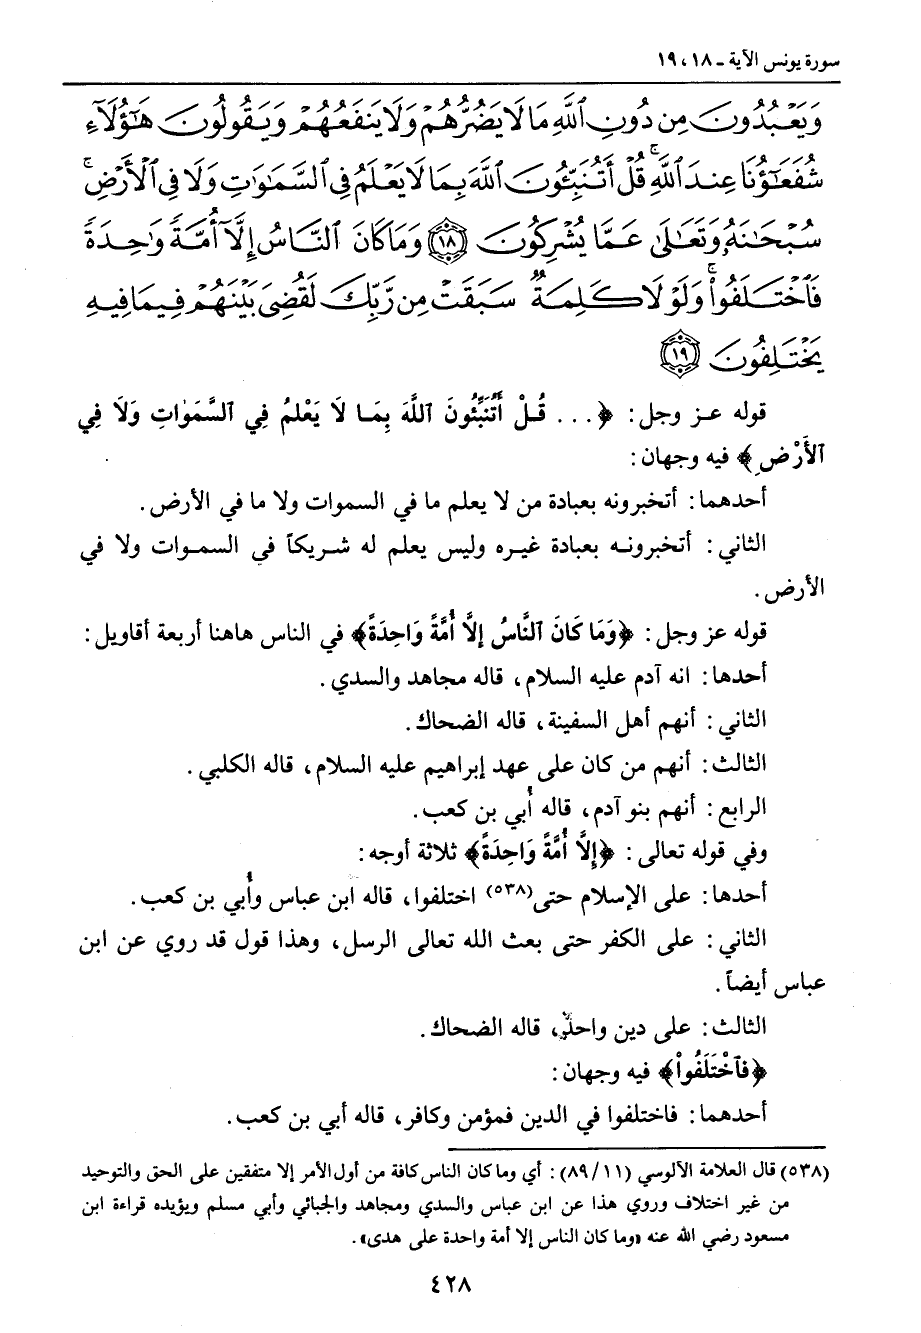 سورة يونس الآية ـ ١٨، ١٩
وَيَعْبُدُونَ مِن دُونِ ٱللَّهِ مَا لَا يَضُرُّهُمْ وَلَا يَنفَعُهُمْ وَيَقُولُونَ هَٰٓؤُلَآءِ
شُفَعَٰٓؤُنَا عِندَ ٱللَّهِ ۚ قُلْ أَتُنَبِّـُٔونَ ٱللَّهَ بِمَا لَا يَعْلَمُ فِى ٱلسَّمَٰوَٰتِ وَلَا فِى ٱلْأَرْضِ ۚ
سُبْحَٰنَهُۥ وَتَعَٰلَىٰ عَمَّا يُشْرِكُونَ ﴿١٨﴾ وَمَا كَانَ ٱلنَّاسُ إِلَّآ أُمَّةً وَٰحِدَةً
فَٱخْتَلَفُوا۟ ۚ وَلَوْلَا كَلِمَةٌ سَبَقَتْ مِن رَّبِّكَ لَقُضِىَ بَيْنَهُمْ فِيمَا فِيهِ
يَخْتَلِفُونَ ﴿١٩﴾
قوله عز وجل: ﴿... قُلْ أَتُنَبِّئُونَ ٱللَّهَ بِمَا لَا يَعْلَمُ فِي ٱلسَّمَوَاتِ وَلَا فِي
ٱلْأَرْضِ﴾ فيه وجهان:
أحدهما: أتخبرونه بعبادة من لا يعلم ما في السموات ولا ما في الأرض.
الثاني: أتخبرونه بعبادة غيره وليس يعلم له شريكاً في السموات ولا في
الأرض.
قوله عز وجل: ﴿وَمَا كَانَ ٱلنَّاسُ إِلَّا أُمَّةً وَاحِدَةً﴾ في الناس هاهنا أربعة أقاويل:
أحدها: انه آدم عليه السلام، قاله مجاهد والسدي.
الثاني: أنهم أهل السفينة، قاله الضحاك.
الثالث: أنهم من كان على عهد إبراهيم عليه السلام، قاله الكلبي.
الرابع: أنهم بنو آدم، قاله أُبي بن كعب.
وفي قوله تعالى: ﴿إِلَّا أُمَّةً وَاحِدَةً﴾ ثلاثة أوجه:
أحدها: على الإسلام حتى(٥٣٨) اختلفوا، قاله ابن عباس وأُبي بن كعب.
الثاني: على الكفر حتى بعث الله تعالى الرسل، وهذا قول قد روي عن ابن
عباس أيضاً.
الثالث: على دين واحد، قاله الضحاك.
﴿فَٱخْتَلَفُواْ﴾ فيه وجهان:
أحدهما: فاختلفوا في الدين فمؤمن وكافر، قاله أبي بن كعب.
(٥٣٨) قال العلامة الآلوسي (٨٩/١١): أي وما كان الناس كافة من أول الأمر إلا متفقين على الحق والتوحيد
من غير اختلاف وروي هذا عن ابن عباس والسدي ومجاهد والجبائي وأبي مسلم ويؤيده قراءة ابن
مسعود رضي الله عنه «وما كان الناس إلا أمة واحدة على هدى».
٤٢٨